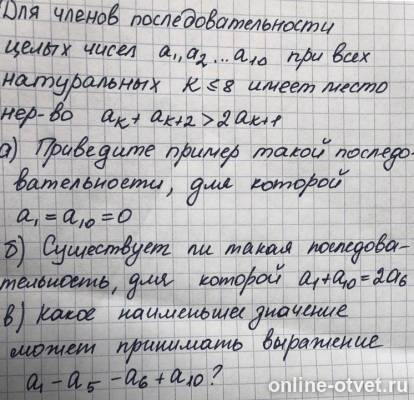 Для членов последовательности
целых чисел a₁, a₂ ... a₁₀ при всех
натуральных k ≤ 8 имеет место
нер-во aₖ + aₖ₊₂ > 2aₖ₊₁
а) Приведите пример такой последо-
вательности, для которой
a₁ = a₁₀ = 0
б) Существует ли такая последова-
тельность, для которой a₁ + a₁₀ = 2a₆
в) Какое наименьшее значение
может принимать выражение
a₁ - a₅ - a₆ + a₁₀?
online-otvet.ru